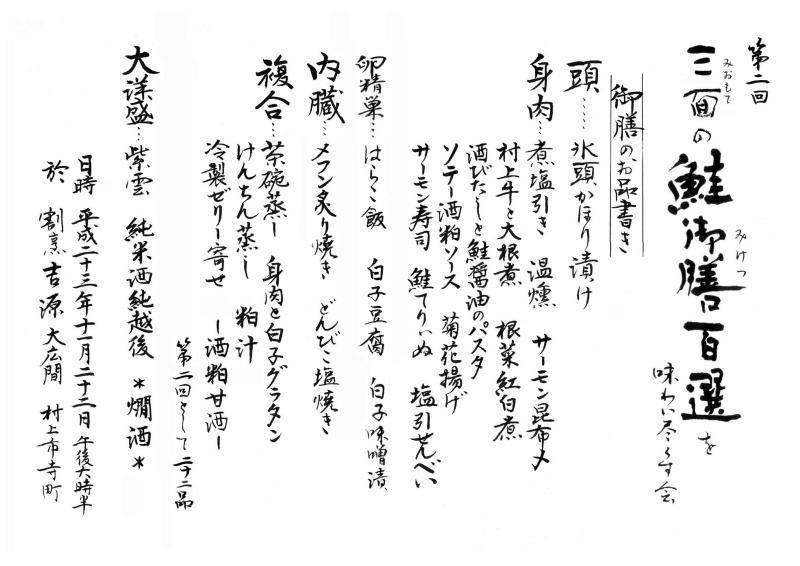 第二回
三面の鮭御膳百選を
みおもて
みけつ
味わい尽くす会
御膳のお品書き
頭……氷頭かほり漬け
身肉…煮塩引き 温燻 サーモン昆布〆
村上牛と大根煮 根菜紅白煮
酒びたしと鮭醤油のパスタ
ソテー酒粕ソース 菊花揚げ
サーモン寿司 鮭てりいぬ 塩引せんべい
卵精巣…はらこ飯 白子豆腐 白子味噌漬
内臓…メフン炙り焼き どんびこ塩焼き
複合…茶碗蒸し 身肉と白子グラタン
けんちん蒸し 粕汁
冷製ゼリー寄せ ー酒粕甘酒ー
第二回として二十二品
大洋盛…紫雲 純米酒純越後 *燗酒*
日時 平成二十三年十一月二十二日 午後六時半
於 割烹吉源 大広間 村上市寺町